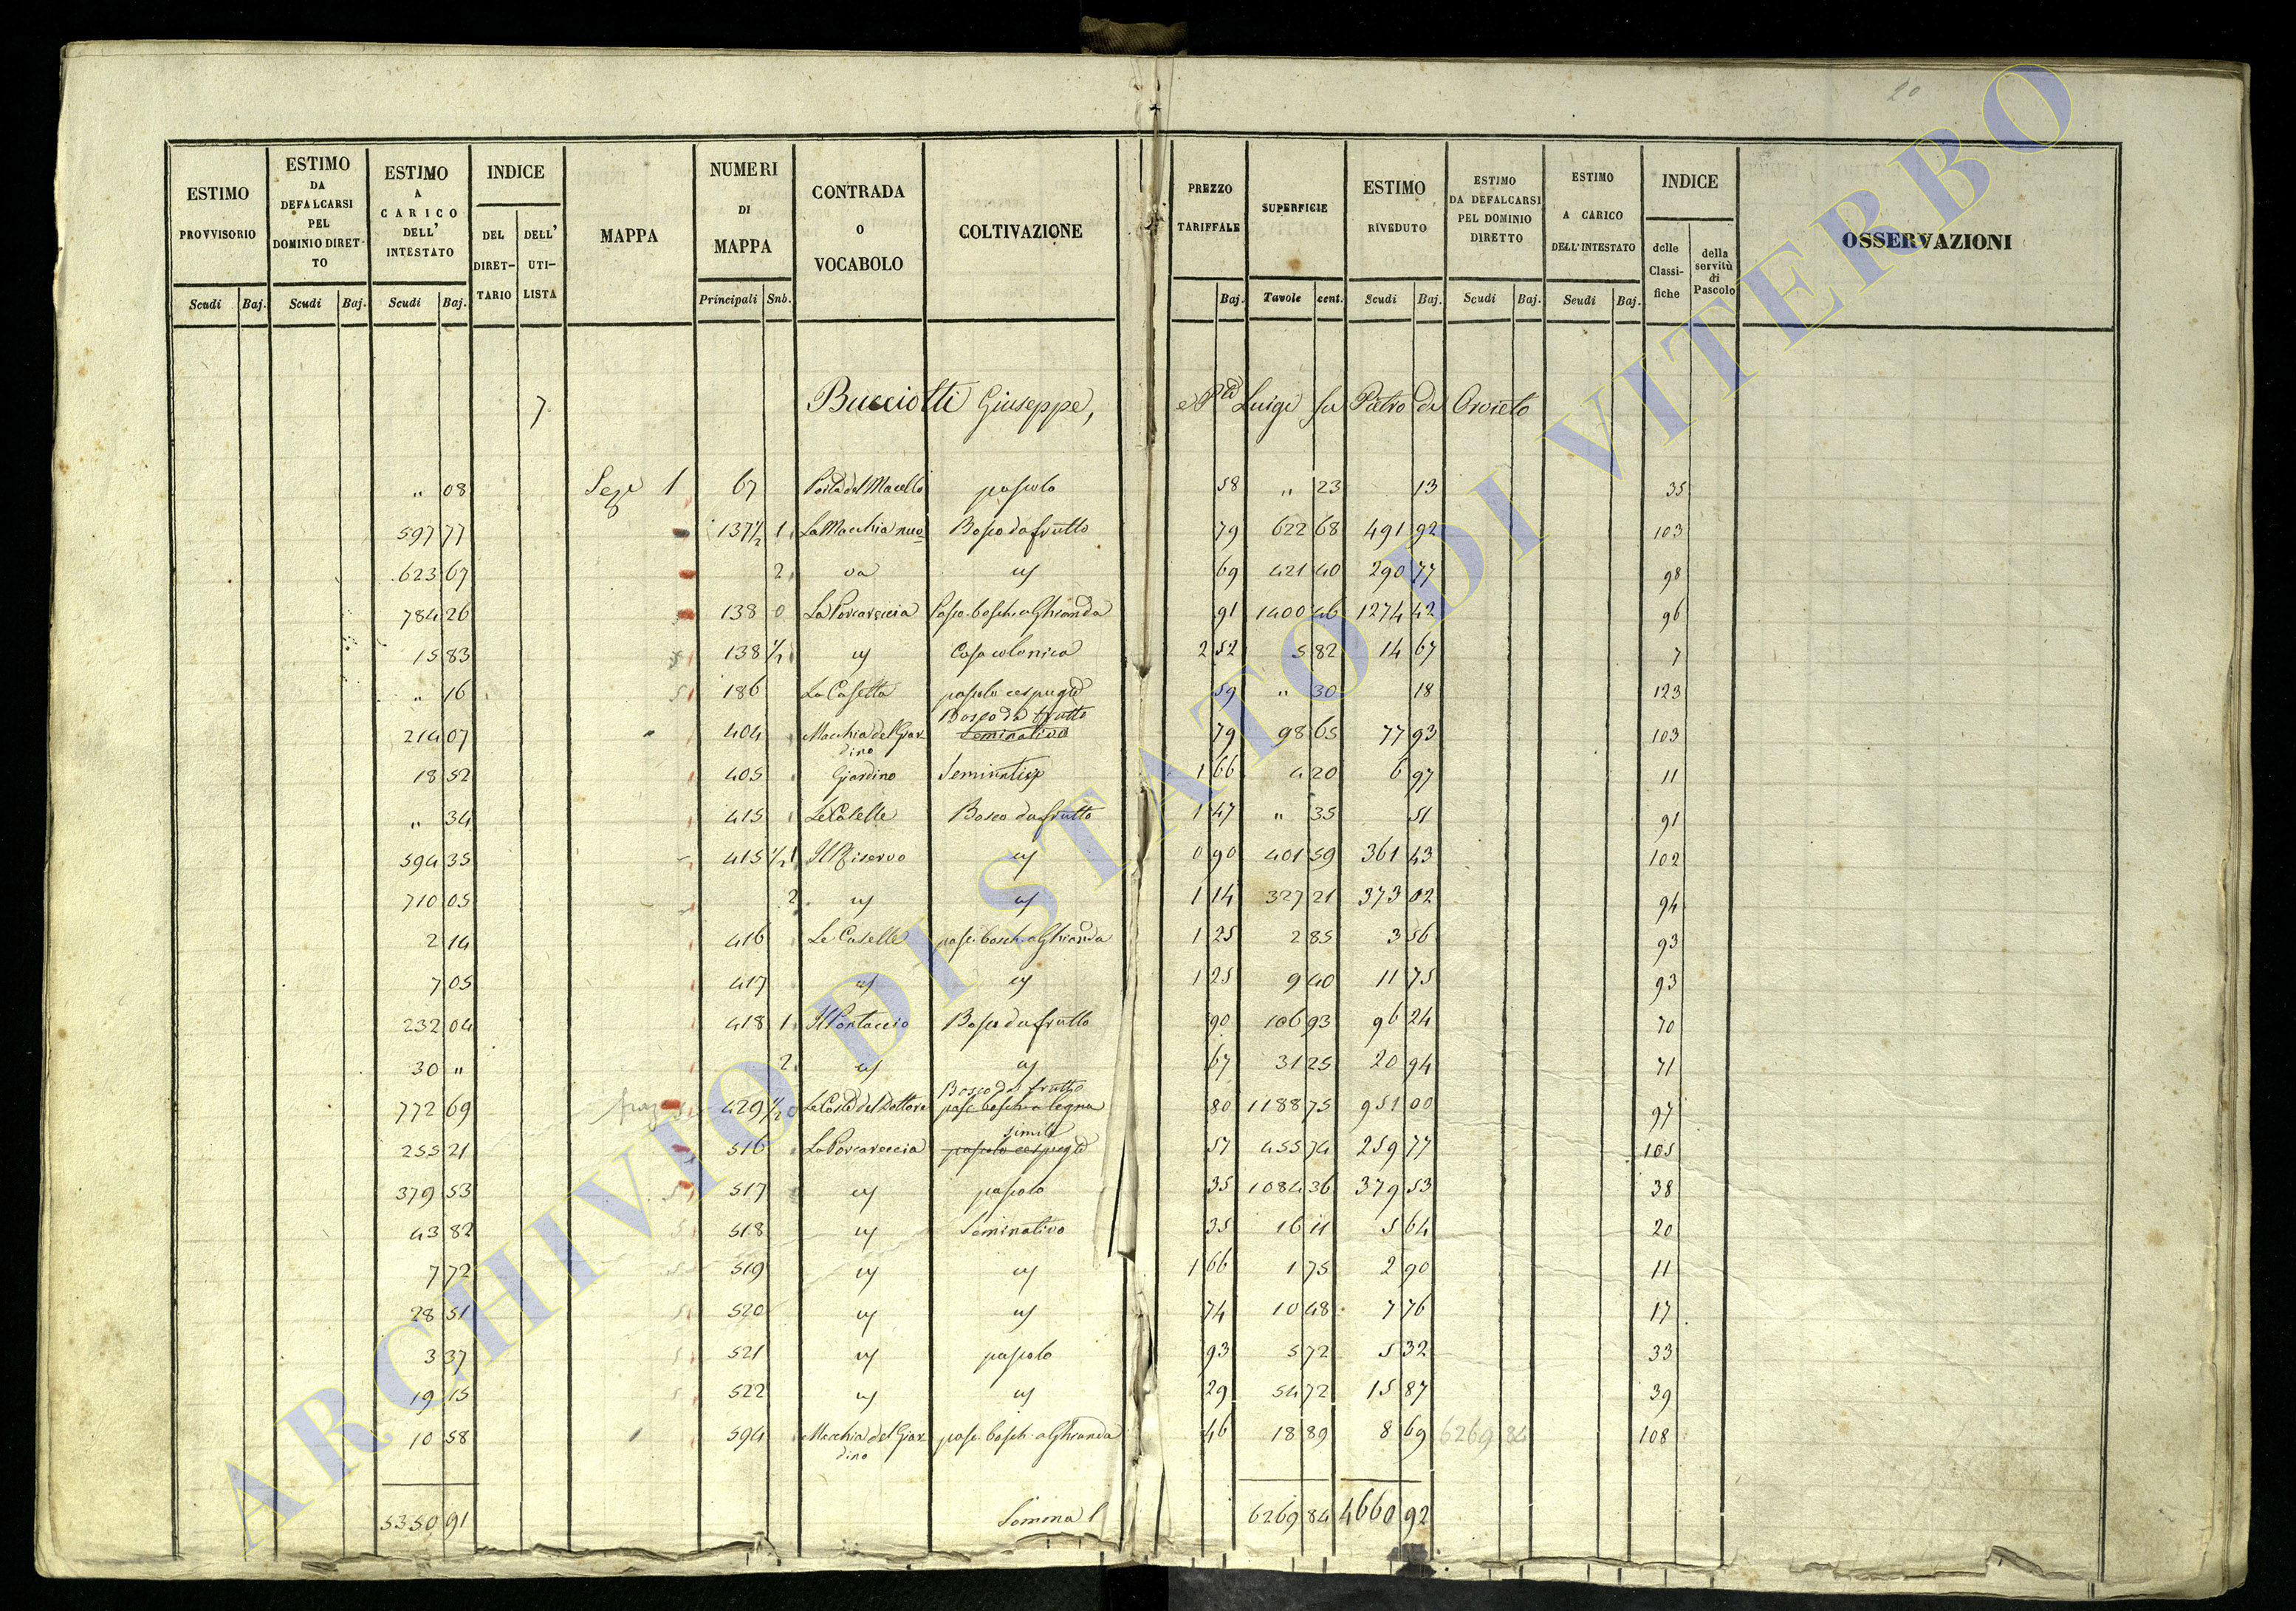 20
ESTIMO PROVVISORIO | ESTIMO DA DEFALCARSI PEL DOMINIO DIRETTO | ESTIMO A CARICO DELL' INTESTATO | INDICE | MAPPA | NUMERI DI MAPPA | CONTRADA O VOCABOLO | COLTIVAZIONE | PREZZO TARIFFALE | SUPERFICIE | ESTIMO RIVEDUTO | ESTIMO DA DEFALCARSI PEL DOMINIO DIRETTO | ESTIMO A CARICO DELL'INTESTATO | INDICE | OSSERVAZIONI
DEL DIRETTARIO | DELL' UTILISTA | delle Classifiche | della servitù di Pascolo
Scudi | Baj. | Scudi | Baj. | Scudi | Baj. | Principali | Snb. | Baj. | Tavole | cent. | Scudi | Baj. | Scudi | Baj. | Scudi | Baj.
7 Bucciotti Giuseppe, e Luigi fu Pietro da Orvieto
" 08 Seze 1 67 Porta del Macello pascolo 58 " 23 13 35
597 77 137 1/2 1 La Macchia nuo= Bosco da frutto 79 622 68 491 92 103
623 67 2 va id 69 421 40 290 77 98
784 26 138 0 La Porcareccia Pasc. bosch. a Ghianda 91 1400 46 1274 42 96
15 83 138 1/2 id Casa colonica 2 52 5 82 14 67 7
" 16 186 La Casetta pascolo cespugto 59 " 30 18 123
Bosco da frutto
214 07 404 Macchia del Giardino Seminativo 79 98 65 77 93 103
18 52 405 Giardino Seminativo 1 66 4 20 6 97 11
" 34 415 Le Caselle Bosco da frutto 1 47 " 35 51 91
594 35 415 1/2 1 Il Riservo id 0 90 401 59 361 43 102
710 05 2 id id 1 14 327 21 373 02 94
2 14 416 Le Caselle pasc. bosch. a Ghianda 1 25 2 85 3 56 93
7 05 417 id id 1 25 9 40 11 75 93
232 04 418 1 Il Pontaccio Bosco da frutto 90 106 93 96 24 70
30 " 2 id id 67 31 25 20 94 71
Bosco da frutto
772 69 fraz 429 1/2 0 Le Coste del Dottore pasc. bosch. a legna 80 1188 75 951 00 97
simile
255 21 516 La Porcareccia pascolo cespugto 57 455 74 259 77 105
379 53 517 id pascolo 35 1084 36 379 53 38
43 82 518 id Seminativo 35 16 11 5 64 20
7 72 519 id id 1 66 1 75 2 90 11
28 51 520 id id 74 10 48 7 76 17
3 37 521 id pascolo 93 5 72 5 32 33
19 15 522 id id 29 54 72 15 87 39
10 58 594 Macchia del Giardino pasc. bosch. a Ghianda 46 18 89 8 69 6269 84 108
5350 91 Somma 6269 84 4660 92
ARCHIVIO DI STATO DI VITERBO